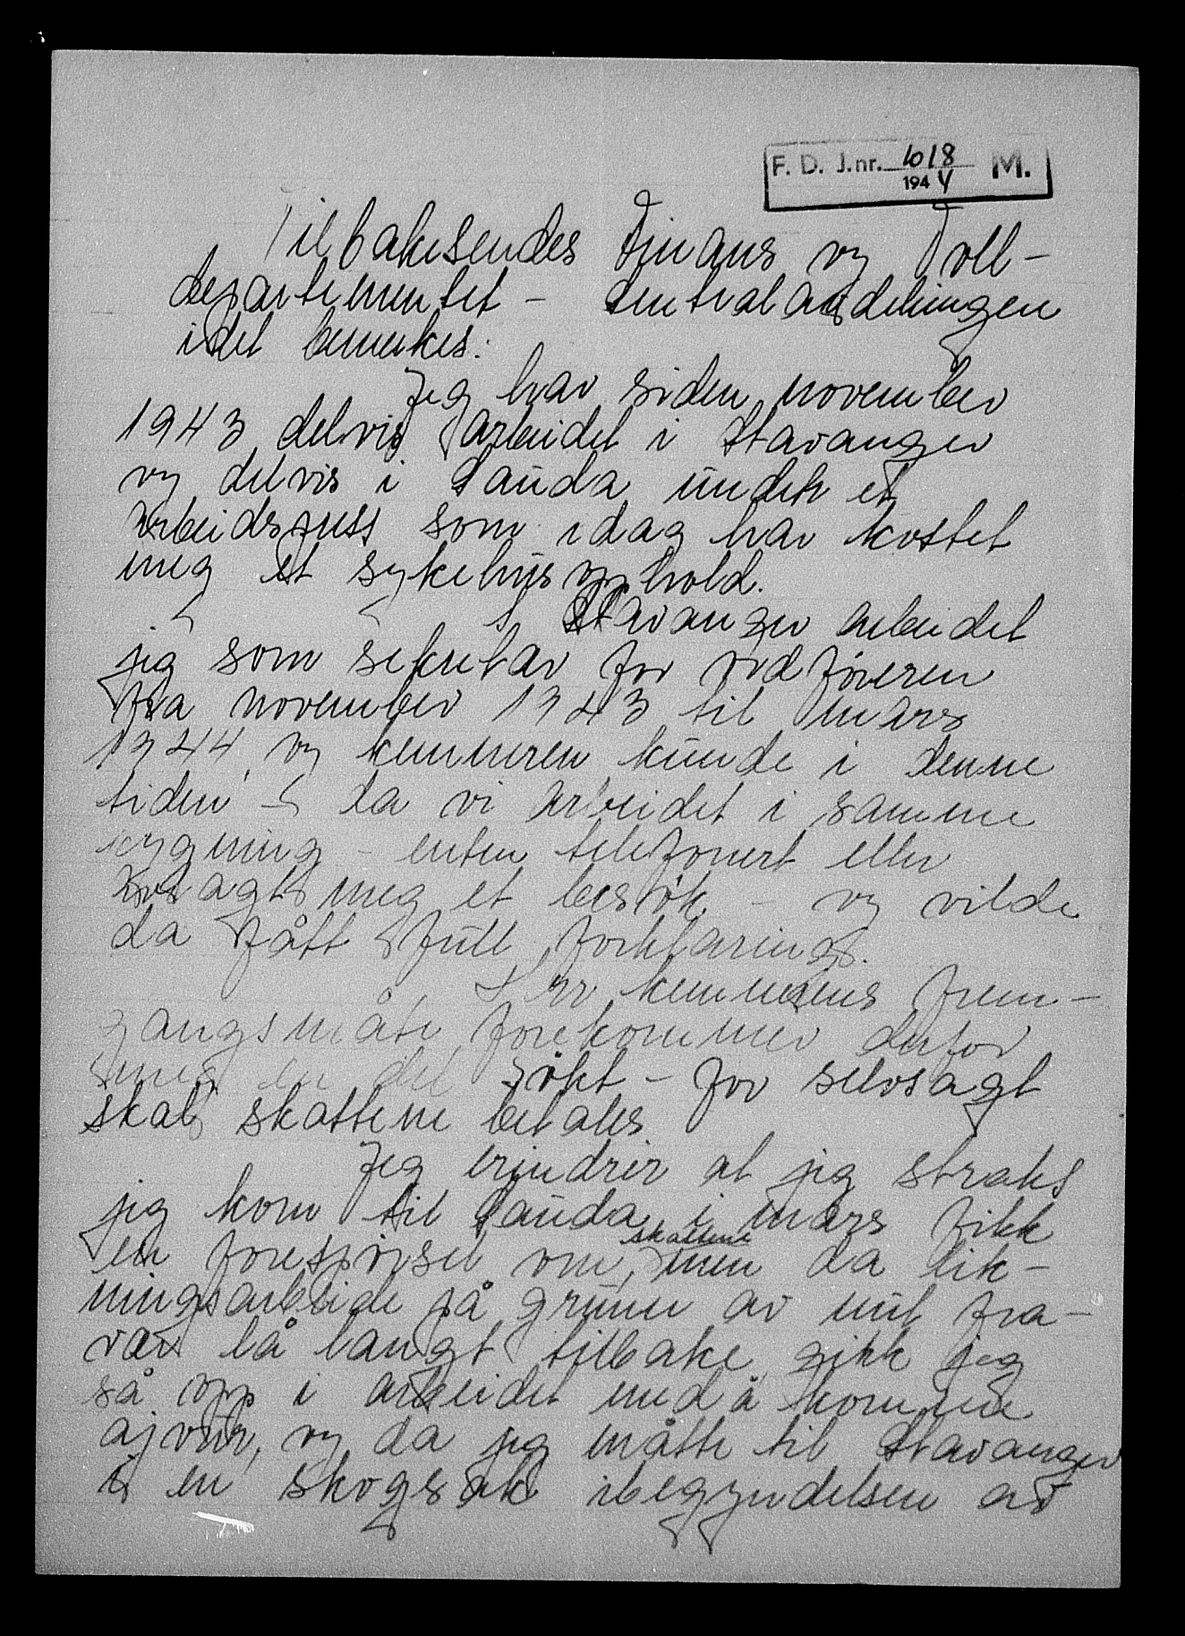 F. D. J.nr. 1018 M.
1944
Tilbakesendes Finans og Toll-
departementet - Sentralavdelingen
idet bemerkes:
Jeg har siden november
1943 delvis arbeidet i Stavanger
og delvis i Sauda under et
arbeidspress som idag har kostet
meg et sykehusopphold.
I Stavanger arbeidet
jeg som sekretær for ordføreren
fra november 1943 til mars
1944, og kemneren kunde i denne
tiden - da vi arbeidet i samme
bygning - enten telefonert eller
avlagt meg et besøk - og vilde
da fått full forklaring.
Herr kemnerens frem-
gangsmåte forekommer derfor
meg en del søkt - for selvsagt
skal skattene betales
Jeg erindrer at jeg straks
jeg kom til Sauda i mars fikk
en forespørsel om skattene, men da lik-
ningsarbeide på grunn av mit fra-
vær lå langt tilbake gikk jeg
så opp i arbeidet med å komme
ajour, og da jeg måtte til Stavanger
i en skogsak i begyndelsen av